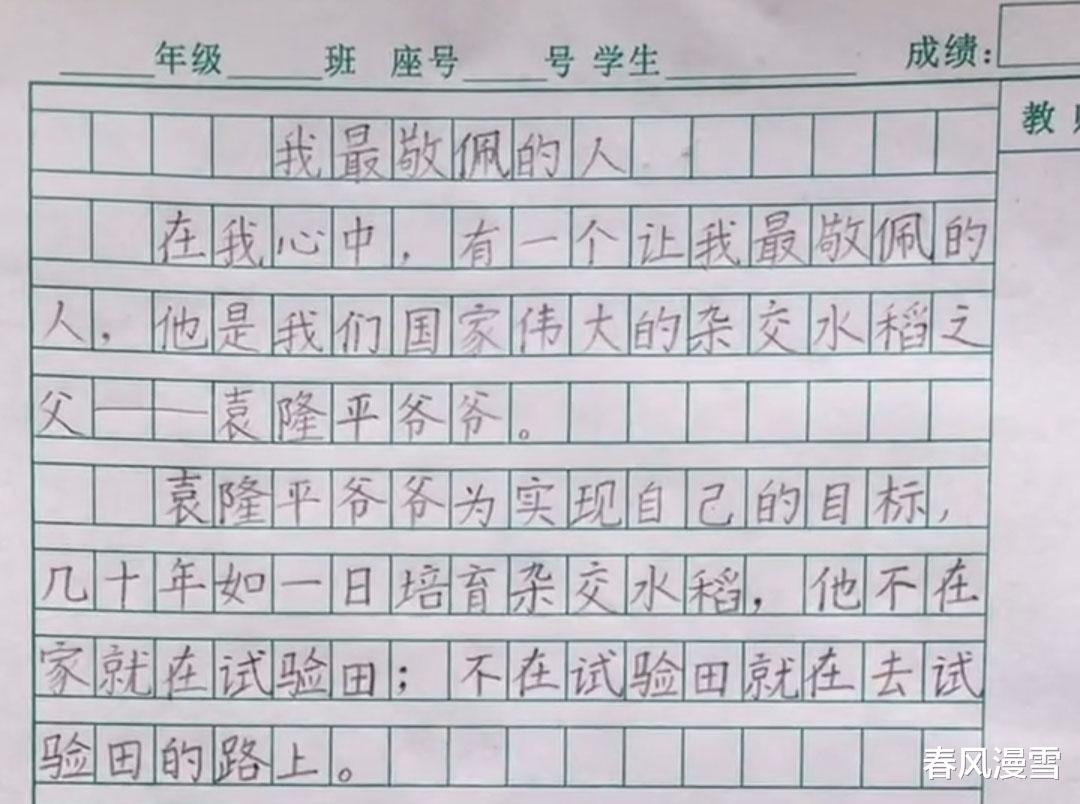 ____年级____班 座号____号 学生________ 成绩:
教
我最敬佩的人
在我心中，有一个让我最敬佩的
人，他是我们国家伟大的杂交水稻之
父——袁隆平爷爷。
袁隆平爷爷为实现自己的目标，
几十年如一日培育杂交水稻，他不在
家就在试验田；不在试验田就在去试
验田的路上。
春风漫雪